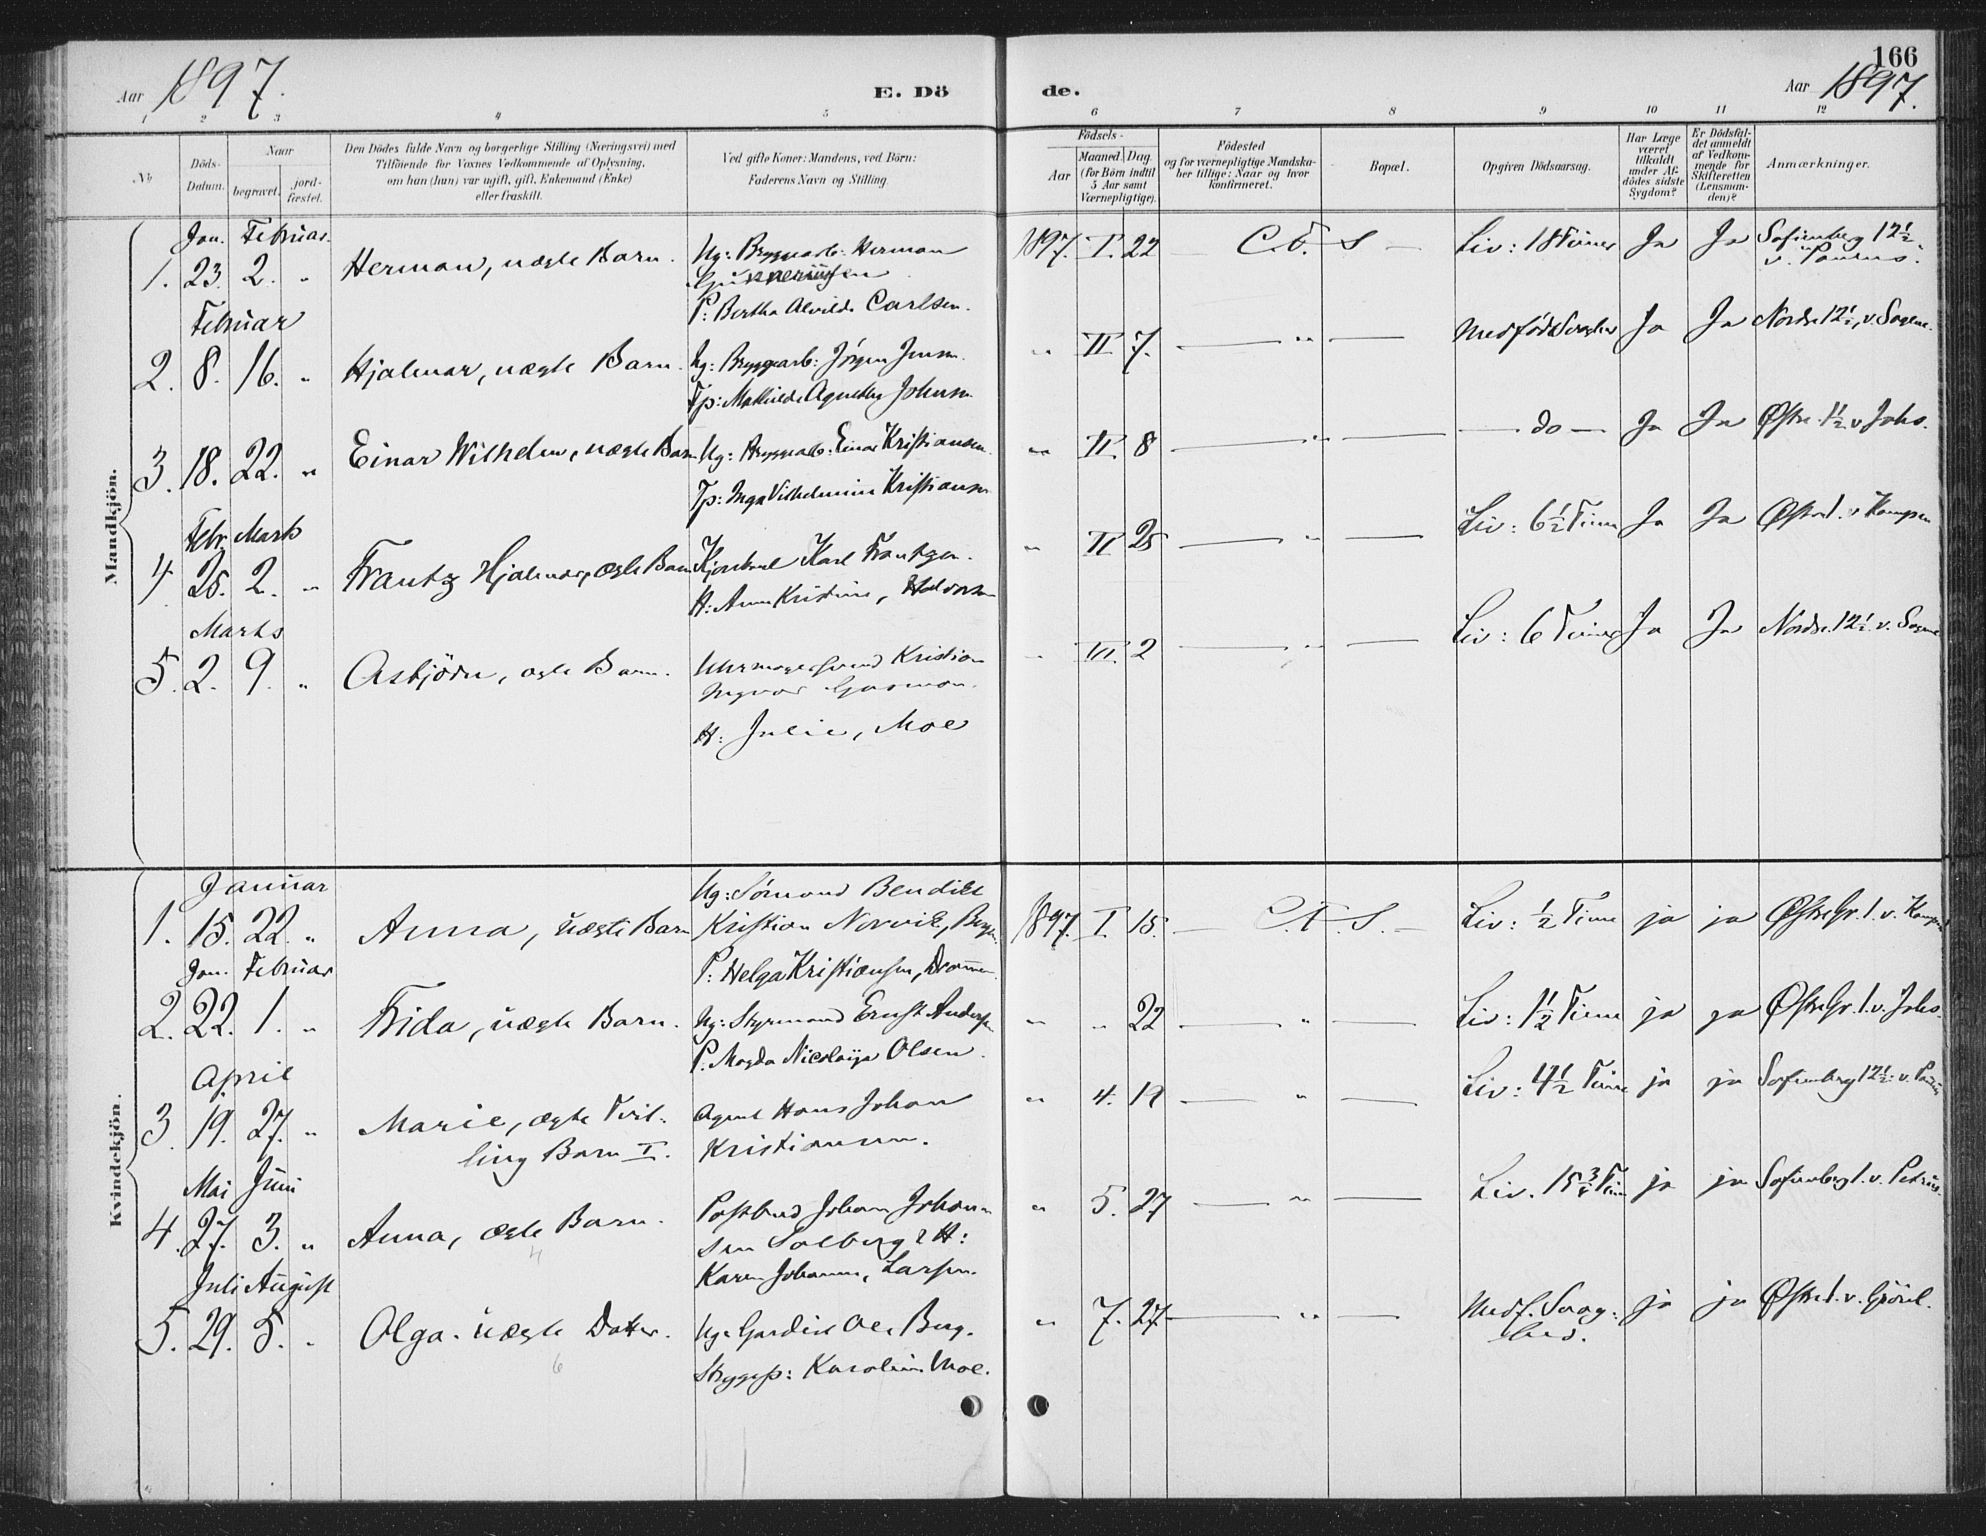 166
Aar 1897.
E. Dö
de.
Aar 1897.
1 2 3 4 5 6 7 8 9 10 11 12
No
Döds-
Datum.
Naar
begravet.
jord-
fæstet.
Den Dödes fulde Navn og borgerlige Stilling (Næringsvei) med
Tilföiende for Voxnes Vedkommende af Oplysning,
om han (hun) var ugift, gift, Enkemand (Enke)
eller fraskilt.
Ved gifte Koner: Mandens, ved Börn:
Faderens Navn og Stilling.
Födsels-
Aar
Maaned. Dag.
(for Börn indtil
5 Aar samt
Værnepligtige).
Födested
og for værnepligtige Mandska-
ber tillige: Naar og hvor
konfirmeret.
Bopæl.
Opgiven Dödsaarsag.
Har Læge
været
tilkaldt
under Af-
dödes sidste
Sygdom?
Er Dödsfal-
det anmeldt
af Vedkom-
mende for
Skifteretten
(Lensman-
den)?
Anmærkninger.
Mandkjön.
Jan. Februar.
1. 23. 2. " Herman, uægte Barn. Ug: Bryggearb: Herman 1897. I. 22 C. F. S Liv: 18 Timer Ja Ja Sofienberg 12½
v. Paulus.
P: Bertha Alvilde Carlsen.
Februar
2. 8. 16. " Hjalmar, uægte Barn. Ug: Bryggearb: Jörgen Jensen " II 7. " Medfödt Svaghed Ja Ja Nordre 12½, v. Sagene.
Tp: Mathilde Johnsen
3. 18. 22. " Einar Wilhelm, uægte Barn Ug: Bryggearb: Einar Kristiansen " II. 8 " do Ja Ja Østre 1½ v Johs.
Tp: Inga Vilhelmine Kristiansen
Febr. Marts
4 25. 2. " Frantz Hjalmar, ægte Barn Karl Frantzen. " II 25 " Liv: 6½ Time Ja Ja Østre 1. v Kampen
H: Anna Kristine, Halvorsen
Marts
5. 2. 9. " Asbjörn, ægte Barn. Urmager Svend Kristian " III. 2 " Liv: 6 Timer Ja Ja Nordre 12½ v. Sagene
Ingvar
H: Julie, Moe
Kvindekjön.
Januar
1. 15. 22. " Anna, uægte Barn Ug: Sömand Bendikt 1897. I. 15. C. F. S. Liv: ½ Time ja ja Østre Gr. 1. v. Kampen
Kristian Norvik, Bergen.
P: Helga Kristiansen, Drammen
Jan. Februar
2. 22. 1. " Frida, uægte Barn. Ug: Styrmand Ernst Andersen " " 22 " Liv: 1½ Time ja ja Østre Gr. 1. v. Johs.
P. Magda Nicolaija Olsen.
April
3 19. 27. " Marie, ægte Tvil- Agent Hans Johan " 4. 19 " Liv: 4½ Time ja ja Sofienberg 12½ v. Paulus
ling Barn I. Kristiansen.
Mai Juni
4. 27. 3. " Anna, ægte Barn. Postbud Johan Johan- " 5. 27 " Liv. 15¾ Time ja ja Sofienberg 1. v. Petrus.
4 sen Solberg & H:
Karen Johanne, Larsen.
Juli August
5. 29. 5. " Olga. uægte Datter. Ug: Gardist Ole Berg. " 7. 27 " Medf. Svag- ja ja Østre 1. v. Grönl.
6 Strygep: Karoline Moe. hed.